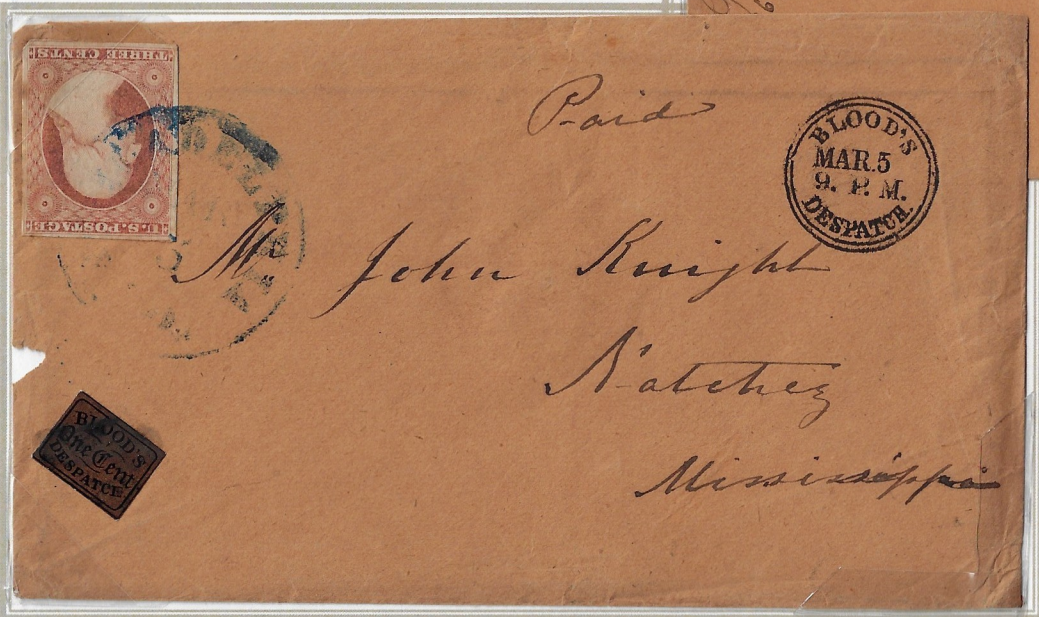 THREE CENTS
U.S. POSTAGE
Paid
BLOOD'S
MAR. 5
9. P. M.
DESPATCH.
Mr John Knight
Natchez
Mississippi
BLOOD'S
One Cent
DESPATCH